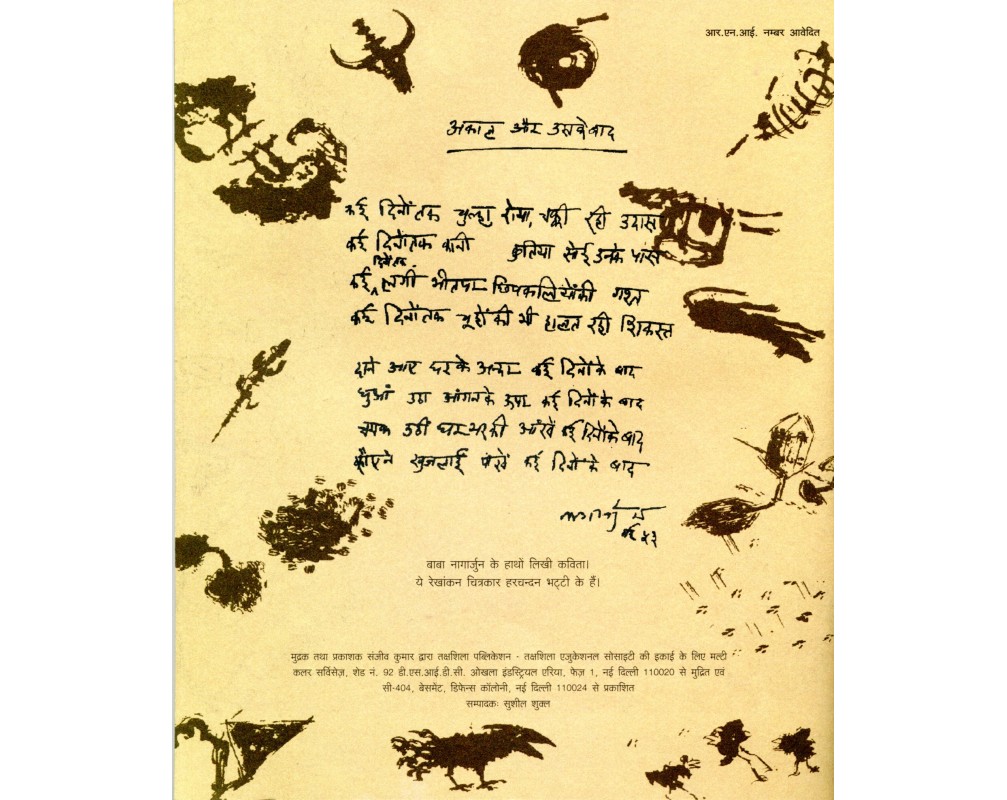 आर.एन.आई. नम्बर आवेदित
अकाल और उसके बाद
कई दिनों तक चूल्हा रोया, चक्की रही उदास
कई दिनों तक कानी कुतिया सोई उनके पास
कई दिनों तक लगी भीत पर छिपकलियों की गश्त
कई दिनों तक चूहों की भी हालत रही शिकस्त
दाने आए घर के अन्दर कई दिनों के बाद
धुआं उठा आंगन के ऊपर कई दिनों के बाद
चमक उठीं घर भर की आंखें कई दिनों के बाद
कौए ने खुजलाई पांखें कई दिनों के बाद
नागार्जुन
५३
बाबा नागार्जुन के हाथों लिखी कविता।
ये रेखांकन चित्रकार हरचन्दन भट्टी के हैं।
मुद्रक तथा प्रकाशक संजीव कुमार द्वारा तक्षशिला पब्लिकेशन - तक्षशिला एजुकेशनल सोसाइटी की इकाई के लिए मल्टी
कलर सर्विसेज़, शेड नं. 92 डी.एस.आई.डी.सी. ओखला इंडस्ट्रियल एरिया, फेज़ 1, नई दिल्ली 110020 से मुद्रित एवं
सी-404, बेसमेंट, डिफेन्स कॉलोनी, नई दिल्ली 110024 से प्रकाशित
सम्पादकः सुशील शुक्ल